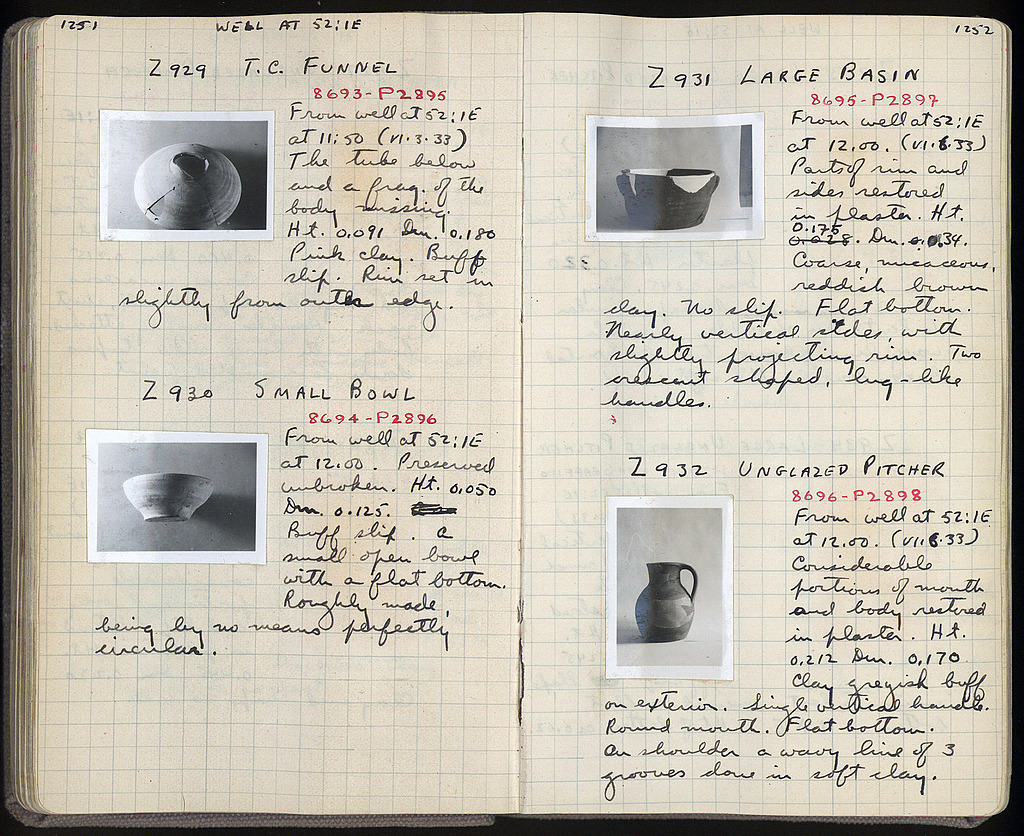 1251
WELL AT 52:1E
Z 929 T.C. FUNNEL
8693-P2895
From well at 52:1E
at 11:50 (VI.3.33)
The tube below
and a frag. of the
body missing.
Ht. 0.091 Dm. 0.180
Pink clay. Buff
slip. Rim set in
slightly from outer edge.
Z 930 SMALL BOWL
8694-P2896
From well at 52:1E
at 12.00. Preserved
unbroken. Ht. 0.050
Dm. 0.125.
Buff slip. A
small open bowl
with a flat bottom.
Roughly made,
being by no means perfectly
circular.
1252
Z 931 LARGE BASIN
8695-P2897
From well at 52:1E
at 12.00. (VI.6.33)
Parts of rim and
sides restored
in plaster. Ht.
0.175
0.028. Dm. 0.34.
Coarse, micaceous,
reddish brown
clay. No slip. Flat bottom.
Nearly vertical sides, with
slightly projecting rim. Two
crescent shaped, lug-like
handles.
Z 932 UNGLAZED PITCHER
8696-P2898
From well at 52:1E
at 12.00. (VI.6.33)
Considerable
portions of mouth
and body restored
in plaster. Ht.
0.212 Dm. 0.170
Clay greyish buff
on exterior. Single vertical handle.
Round mouth. Flat bottom.
On shoulder a wavy line of 3
grooves done in soft clay.